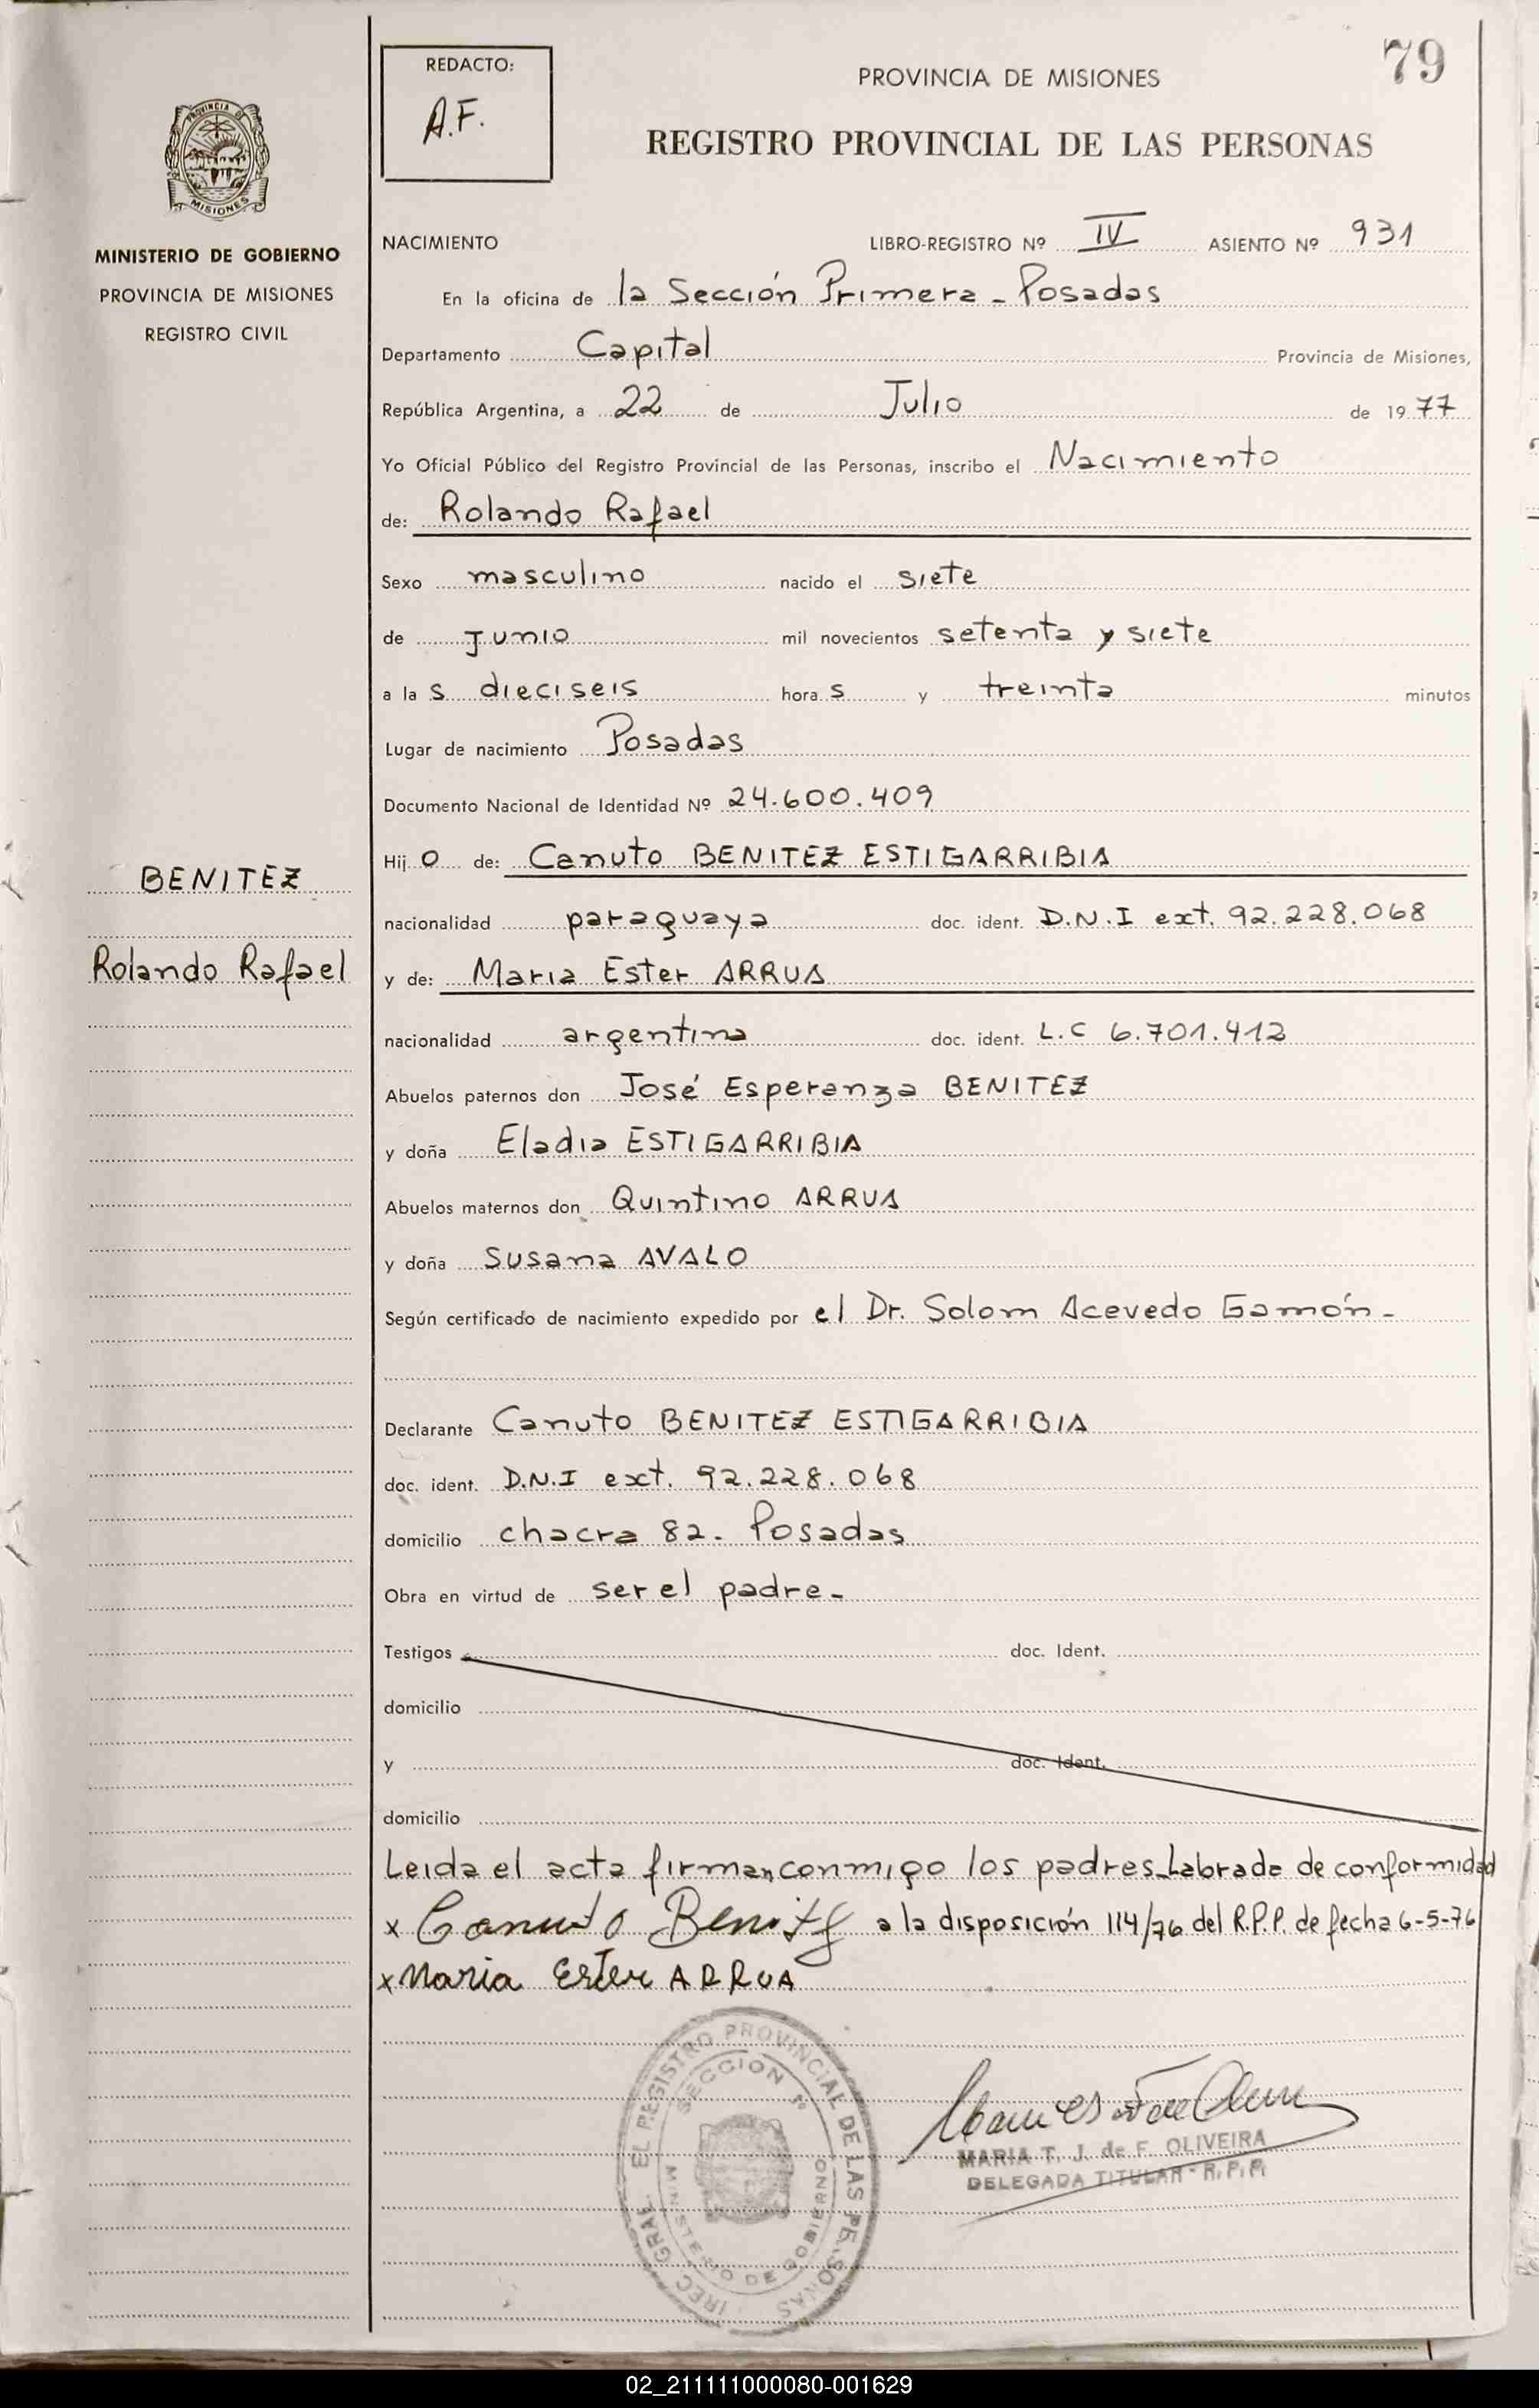 79
REDACTO:
A.F.
PROVINCIA DE MISIONES
REGISTRO PROVINCIAL DE LAS PERSONAS
PROVINCIA D
MISIONES
MINISTERIO DE GOBIERNO
PROVINCIA DE MISIONES
REGISTRO CIVIL
NACIMIENTO LIBRO-REGISTRO Nº IV ASIENTO Nº 931
En la oficina de la Sección Primera - Posadas
Departamento Capital Provincia de Misiones,
República Argentina, a 22 de Julio de 1977
Yo Oficial Público del Registro Provincial de las Personas, inscribo el Nacimiento
de: Rolando Rafael
Sexo masculino nacido el siete
de junio mil novecientos setenta y siete
a las dieciseis horas y treinta minutos
Lugar de nacimiento Posadas
Documento Nacional de Identidad Nº 24.600.409
Hijo de: Canuto BENITEZ ESTIGARRIBIA
BENITEZ
nacionalidad paraguaya doc. ident. D.N.I ext. 92.228.068
Rolando Rafael
y de: Maria Ester ARRUA
nacionalidad argentina doc. ident. L.C 6.701.412
Abuelos paternos don José Esperanza BENITEZ
y doña Eladia ESTIGARRIBIA
Abuelos maternos don Quintino ARRUA
y doña Susana AVALO
Según certificado de nacimiento expedido por el Dr. Solom Acevedo Gamón -
Declarante Canuto BENITEZ ESTIGARRIBIA
doc. ident. D.N.I ext. 92.228.068
domicilio chacra 82. Posadas
Obra en virtud de ser el padre -
Testigos doc. Ident.
domicilio
y doc. Ident.
domicilio
Leida el acta firman conmigo los padres_Labrada de conformidad
x Canuto Benitez a la disposición 114/76 del R.P.P. de fecha 6-5-76
x Maria Ester ARRUA
DIREC. GRAL. EL REGISTRO PROVINCIAL DE LAS PERSONAS
SECCION 1º
MINISTERIO DE GOBIERNO
MARIA T. J. de F. OLIVEIRA
DELEGADA TITULAR - R.P.P.
02_211111000080-001629